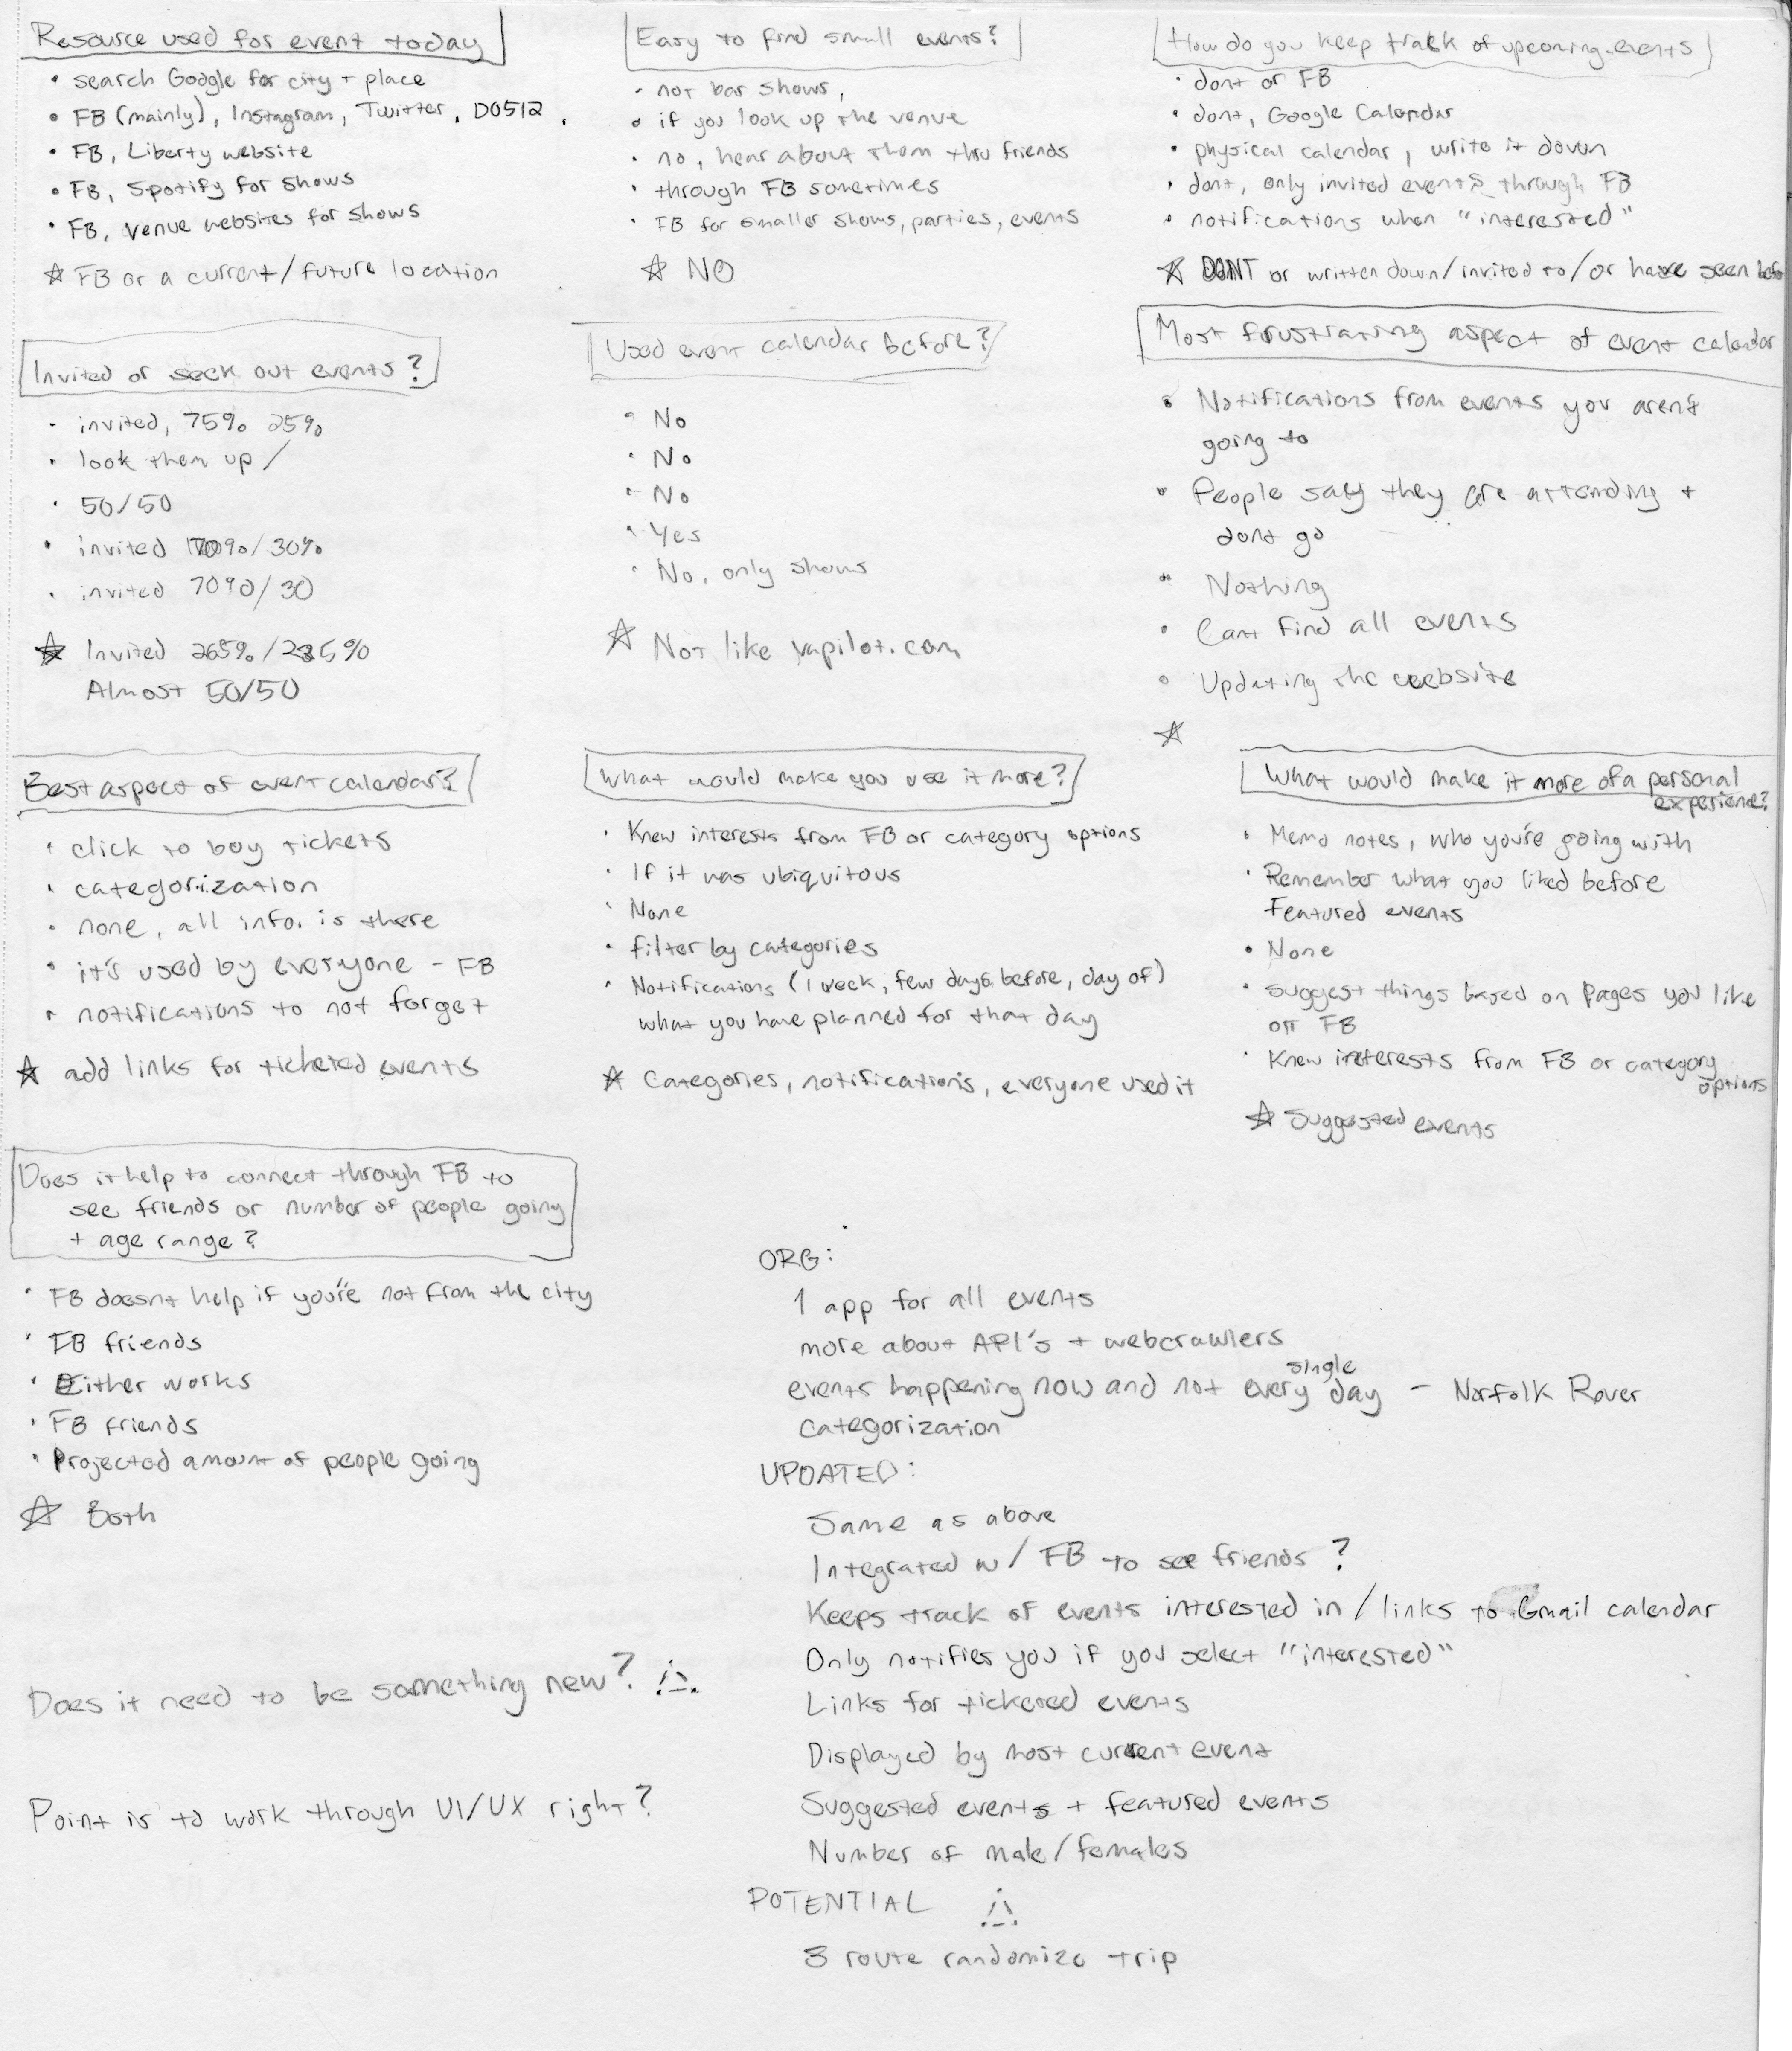 Resource used for event today
• search Google for city + place
• FB (mainly), Instagram, Twitter, DO512,
• FB, Liberty website
• FB, Spotify for shows
• FB, venue websites for shows
☆ FB or a current/future location
Easy to find small events?
• not bar shows,
• if you look up the venue
• no, hear about them thru friends
• through FB sometimes
• FB for smaller shows, parties, events
☆ NO
How do you keep track of upcoming events
• dont or FB
• dont, Google Calendar
• physical calendar, write it down
• dont, only invited events through FB
• notifications when "interested"
☆ DONT or written down/invited to/or have seen
Invited or seek out events?
• invited, 75% 25%
• look them up /
• 50/50
• invited 70%/30%
• invited 70%/30
☆ Invited 265%/235%
Almost 50/50
Used event calendar before?
• No
• No
• No
• Yes
• No, only shows
☆ Not like vapilot.com
Most frustrating aspect of event calendar
• Notifications from events you arent
going to
• People say they are attending +
dont go
• Nothing
• Cant find all events
• Updating the website
☆
Best aspect of event calendar?
• click to buy tickets
• categorization
• none, all info. is there
• it's used by everyone - FB
• notifications to not forget
☆ add links for ticketed events
What would make you use it more?
• Knew interests from FB or category options
• If it was ubiquitous
• None
• filter by categories
• Notifications (1 week, few days before, day of)
what you have planned for that day
☆ Categories, notifications, everyone used it
What would make it more of a personal
experience?
• Memo notes, who you're going with
• Remember what you liked before
Featured events
• None
• suggest things based on pages you like
on FB
• Knew interests from FB or category
options
☆ Suggested events
Does it help to connect through FB to
see friends or number of people going
+ age range?
• FB doesnt help if you're not from the city
• FB friends
• Either works
• FB friends
• Projected amount of people going
☆ Both
Does it need to be something new?
Point is to work through UI/UX right?
ORG:
1 app for all events
more about API's + webcrawlers
single
events happening now and not every day - Norfolk Rover
categorization
UPDATED:
Same as above
Integrated w/ FB to see friends?
Keeps track of events interested in / links to Gmail calendar
Only notifies you if you select "interested"
Links for ticketed events
Displayed by most current event
Suggested events + featured events
Number of male/females
POTENTIAL
3 route randomize trip